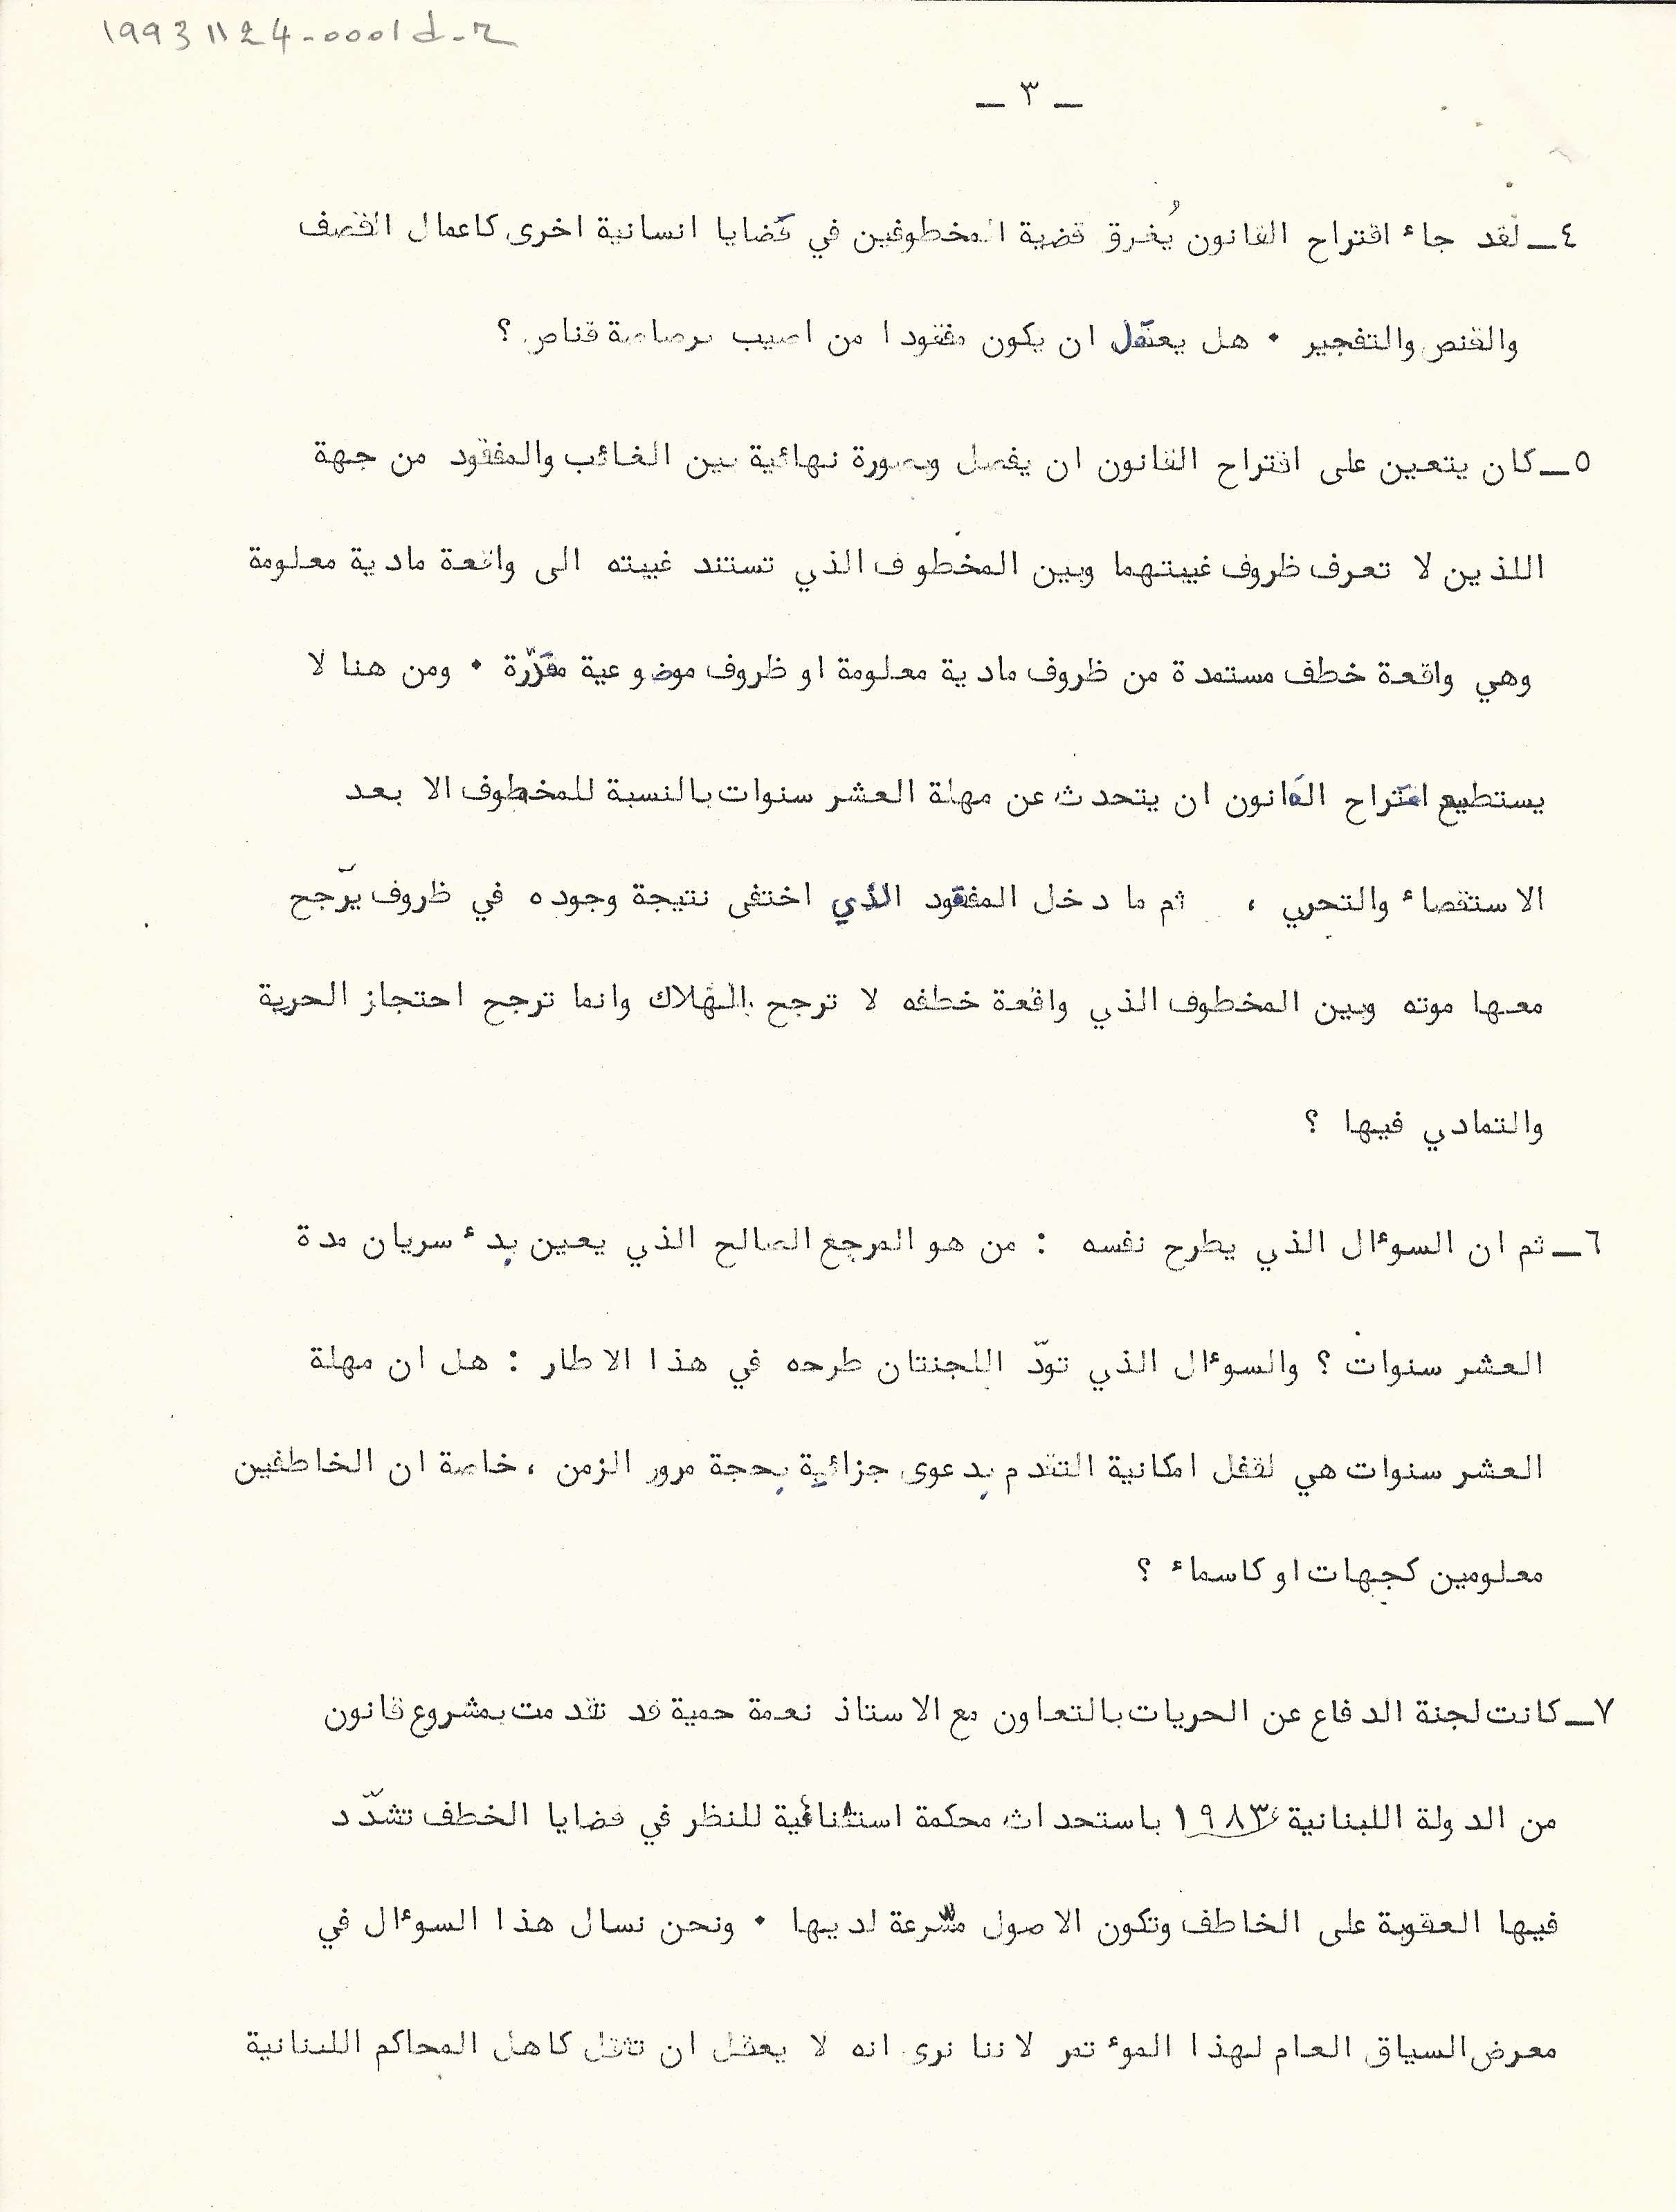 19931124-0001d-r
– ٣ –
٤ــ لقد جاء اقتراح القانون يُغرق قضية المخطوفين في قضايا انسانية اخرى كاعمال القصف
والقنص والتفجير ٠ هل يعقل ان يكون مفقودا من اصيب برصاصة قناص ؟
٥ــ كان يتعين على اقتراح القانون ان يفصل وبصورة نهائية بين الغائب والمفقود من جهة
اللذين لا تعرف ظروف غيبتهما وبين المخطوف الذي تستند غيبته الى واقعة مادية معلومة
وهي واقعة خطف مستمدة من ظروف مادية معلومة او ظروف موضوعية مقدّرة ٠ ومن هنا لا
يستطيع اقتراح القانون ان يتحدث عن مهلة العشر سنوات بالنسبة للمخطوف الا بعد
الاستقصاء والتحري ، ثم ما دخل المفقود الذي اختفى نتيجة وجوده في ظروف يرّجح
معها موته وبين المخطوف الذي واقعة خطفه لا ترجح الهلاك وانما ترجح احتجاز الحرية
والتمادي فيها ؟
٦ــ ثم ان السوءال الذي يطرح نفسه : من هو المرجع الصالح الذي يعين بدء سريان مدة
العشر سنوات ؟ والسوءال الذي تودّ اللجنتان طرحه في هذا الاطار : هل ان مهلة
العشر سنوات هي لقفل امكانية التقدم بدعوى جزائية بحجة مرور الزمن ، خاصة ان الخاطفين
معلومين كجهات او كاسماء ؟
٧ــ كانت لجنة الدفاع عن الحريات بالتعاون مع الاستاذ نعمة حمية قد تقدمت بمشروع قانون
من الدولة اللبنانية ١٩٨٣ باستحداث محكمة استثنائية للنظر في قضايا الخطف تشدّد
فيها العقوبة على الخاطف وتكون الاصول مسرعة لديها ٠ ونحن نسال هذا السوءال في
معرض السياق العام لهذا الموءتمر لاننا نرى انه لا يعقل ان تثقل كاهل المحاكم اللبنانية